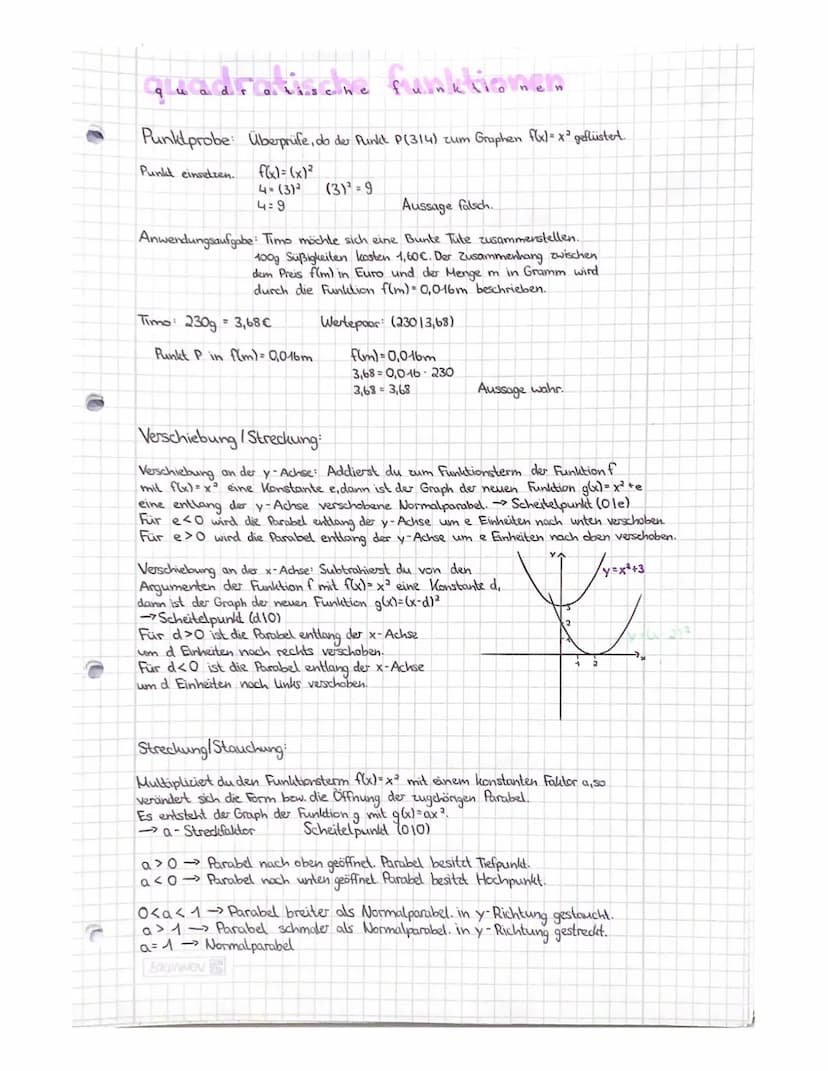 quadratische funktionen
Punktprobe: Überprüfe, ob der Punkt P(3|4) zum Graphen f(x) = x² geflüstert.
Punkt einsetzen. f(x) = (x)²
4 = (3)² (3)² = 9
4 = 9 Aussage falsch.
Anwendungsaufgabe: Timo möchte sich eine Bunte Tüte zusammenstellen.
100g Süßigkeiten kosten 1,60€. Der Zusammenhang zwischen
dem Preis f(m) in Euro und der Menge m in Gramm wird
durch die Funktion f(m) = 0,016m beschrieben.
Timo: 230g = 3,68€ Wertepaar: (230|3,68)
Punkt P in f(m) = 0,016m f(m) = 0,016m
3,68 = 0,016 · 230
3,68 = 3,68 Aussage wahr.
Verschiebung / Streckung:
Verschiebung an der y-Achse: Addierst du zum Funktionsterm der Funktion f
mit f(x) = x² eine Konstante e, dann ist der Graph der neuen Funktion g(x) = x² + e
eine entlang der y-Achse verschobene Normalparabel. → Scheitelpunkt (0|e)
Für e < 0 wird die Parabel entlang der y-Achse um e Einheiten nach unten verschoben.
Für e > 0 wird die Parabel entlang der y-Achse um e Einheiten nach oben verschoben.
Verschiebung an der x-Achse: Subtrahierst du von den
Argumenten der Funktion f mit f(x) = x² eine Konstante d,
dann ist der Graph der neuen Funktion g(x) = (x-d)²
→ Scheitelpunkt (d|0)
Für d > 0 ist die Parabel entlang der x-Achse
um d Einheiten nach rechts verschoben.
Für d < 0 ist die Parabel entlang der x-Achse
um d Einheiten nach links verschoben.
y
y = x² + 3
3
2
1
y = (x-2)²
1 2 x
Streckung/Stauchung:
Multipliziert du den Funktionsterm f(x) = x² mit einem konstanten Faktor a, so
verändert sich die Form bzw. die Öffnung der zugehörigen Parabel.
Es entsteht der Graph der Funktion g mit g(x) = ax².
→ a - Streckfaktor Scheitelpunkt (0|0)
a > 0 → Parabel nach oben geöffnet. Parabel besitzt Tiefpunkt.
a < 0 → Parabel nach unten geöffnet. Parabel besitzt Hochpunkt.
0 < a < 1 → Parabel breiter als Normalparabel. in y-Richtung gestaucht.
a > 1 → Parabel schmaler als Normalparabel. in y-Richtung gestreckt.
a = 1 → Normalparabel